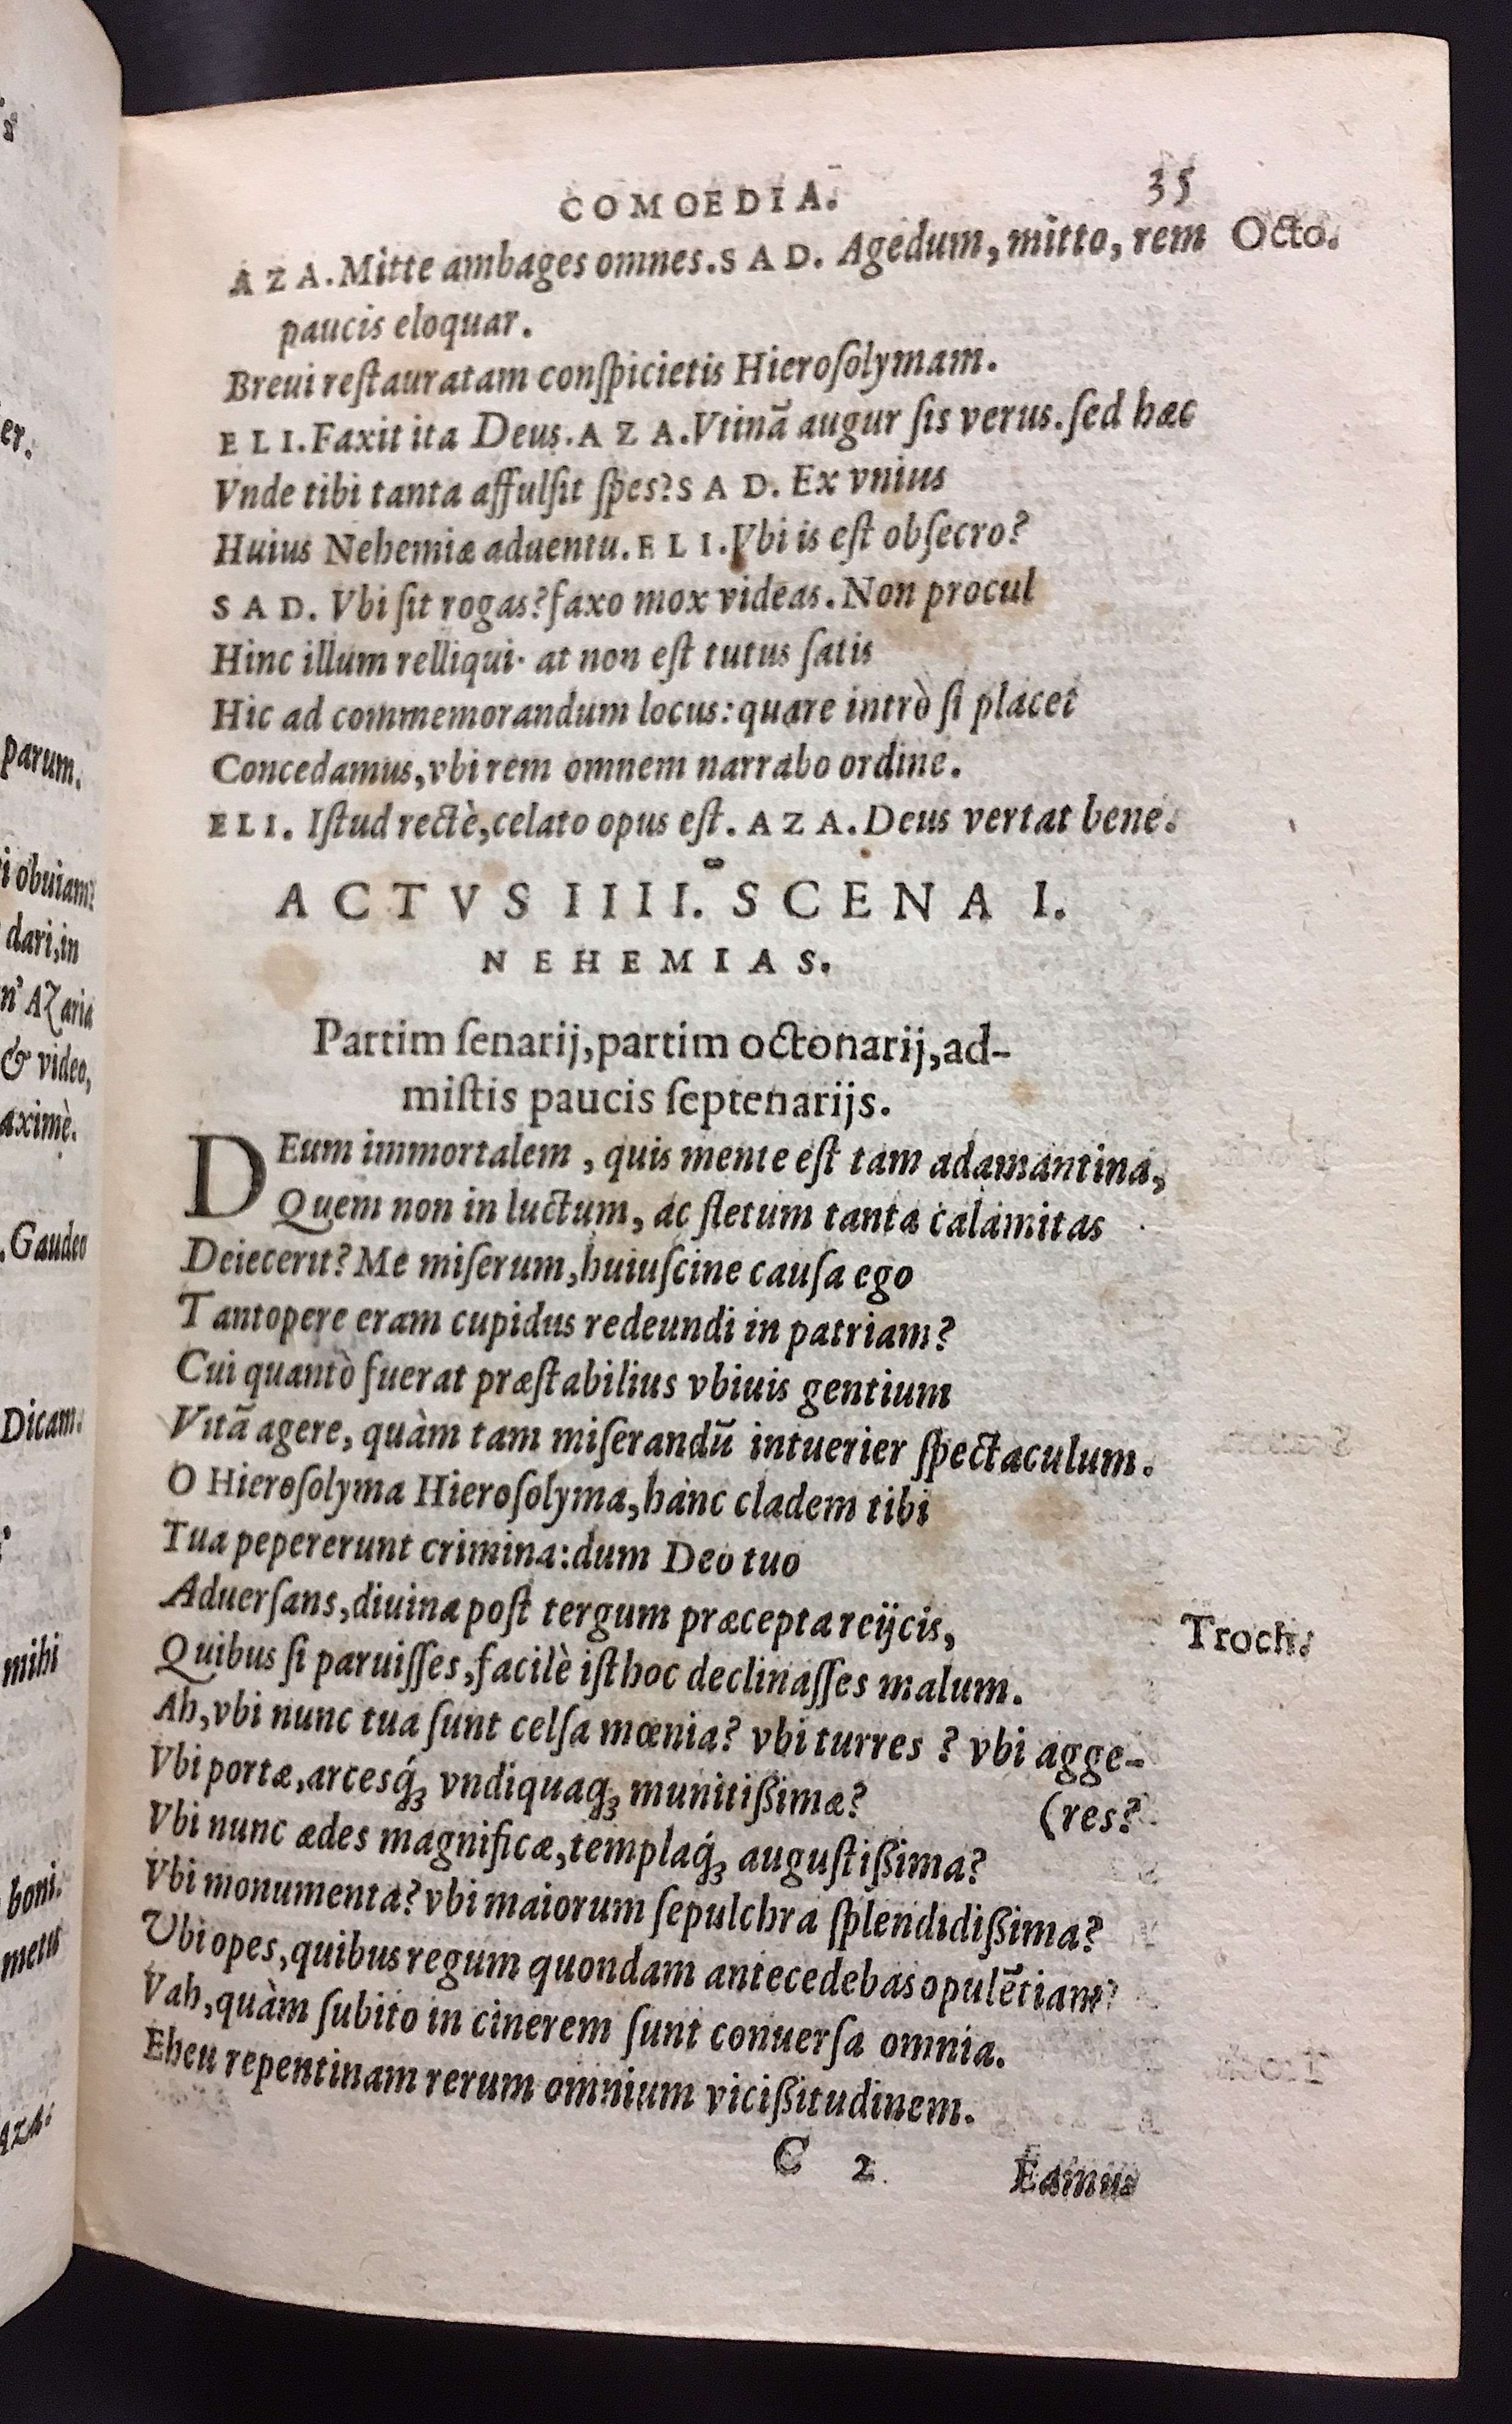 COMOEDIA. 35
AZA. Mitte ambages omnes. SAD. Agedum, mitto, rem Octo.
paucis eloquar.
Breui reſtauratam conſpicietis Hieroſolymam.
ELI. Faxit ita Deus. AZA. Vtinā augur ſis verus. ſed hæc
Vnde tibi tanta affulſit ſpes? SAD. Ex vnius
Huius Nehemiæ aduentu. ELI. Vbi is eſt obſecro?
SAD. Vbi ſit rogas? faxo mox videas. Non procul
Hinc illum relliqui. at non eſt tutus ſatis
Hic ad commemorandum locus: quare intrò ſi placet
Concedamus, vbi rem omnem narrabo ordine.
ELI. Iſtud rectè, celato opus eſt. AZA. Deus vertat bene.
ACTVS IIII. SCENA I.
NEHEMIAS.
Partim ſenarij, partim octonarij, ad-
miſtis paucis ſeptenarijs.
DEum immortalem, quis mente eſt tam adamantina,
Quem non in luctum, ac fletum tanta calamitas
Deiecerit? Me miſerum, huiuſcine cauſa ego
Tantopere eram cupidus redeundi in patriam?
Cui quantò fuerat præſtabilius vbiuis gentium
Vitā agere, quàm tam miſerandū intuerier ſpectaculum.
O Hieroſolyma Hieroſolyma, hanc cladem tibi
Tua pepererunt crimina: dum Deo tuo
Aduerſans, diuina poſt tergum præcepta reijcis,
Quibus ſi paruiſſes, facilè iſthoc declinaſſes malum. Troch.
Ah, vbi nunc tua ſunt celſa mœnia? vbi turres? vbi agge-
Vbi portæ, arcesq́ꝫ vndiquaqꝫ munitißimæ? (res?
Vbi nunc ædes magnificæ, templaq́ꝫ auguſtißima?
Vbi monumenta? vbi maiorum ſepulchra ſplendidißima?
Vbi opes, quibus regum quondam antecedebas opulētiam?
Vah, quàm ſubito in cinerem ſunt conuerſa omnia.
Eheu repentinam rerum omnium vicißitudinem.
C 2 Eamus
er.
parum.
i obuiam?
dari, in
n' Azaria
& video,
aximè.
. Gaudeo
Dicam.
mihi
boni.
metus
AZA.